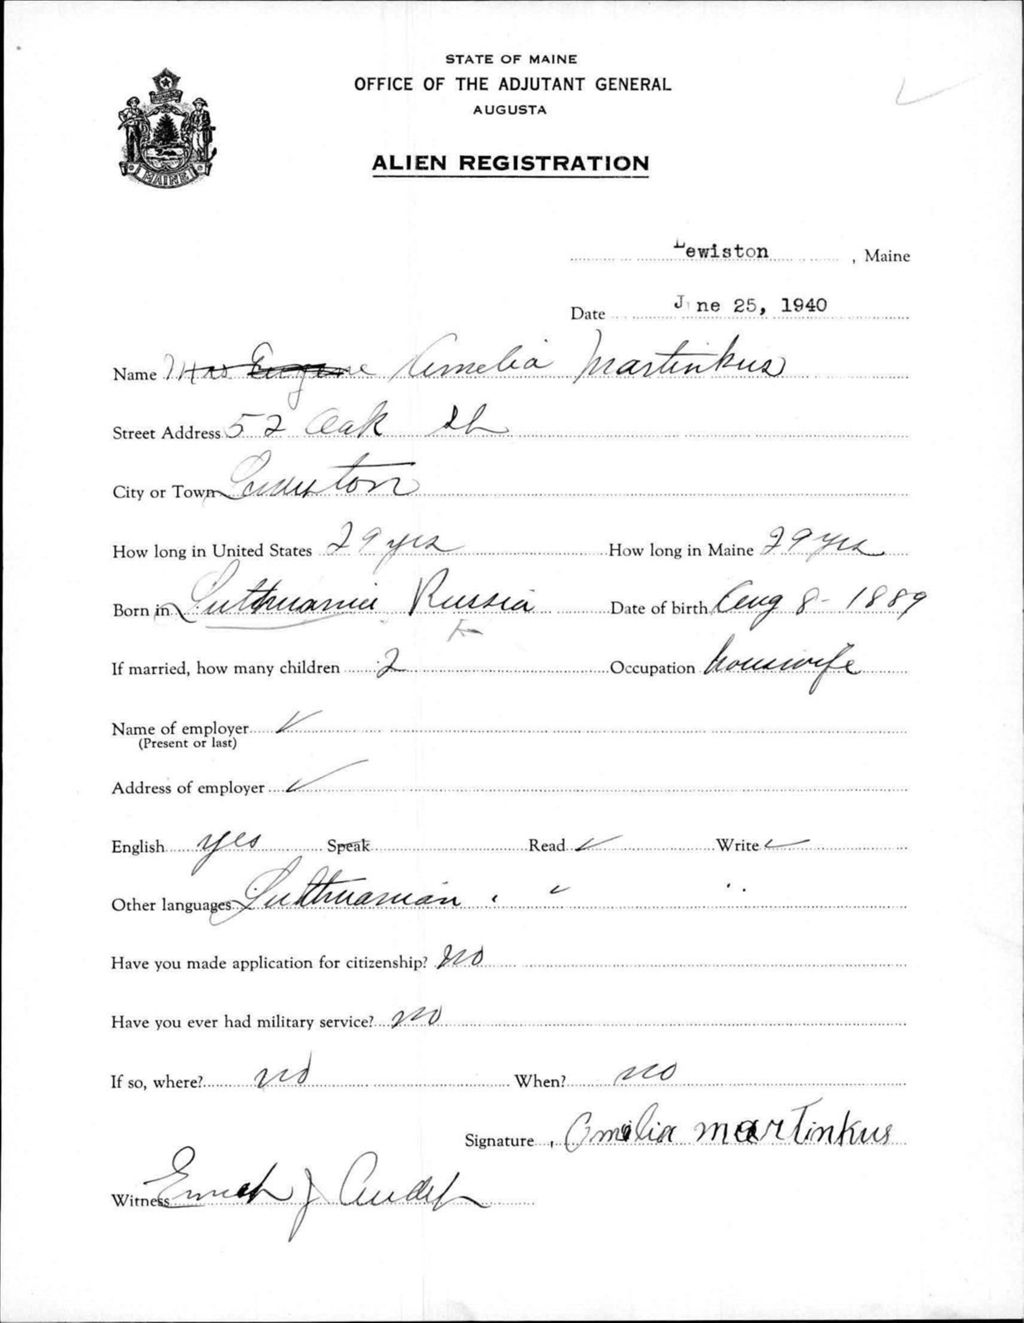 STATE OF MAINE
OFFICE OF THE ADJUTANT GENERAL
AUGUSTA
MAINE
ALIEN REGISTRATION
Lewiston, Maine
Date June 25, 1940
Name Mrs Eugene Amelia Martinkus
Street Address 52 Oak St
City or Town Lewiston
How long in United States 29 yrs How long in Maine 29 yrs
Born in Lithuania Russia Date of birth Aug 8 - 1889
If married, how many children 2 Occupation housewife
Name of employer ✓
(Present or last)
Address of employer ✓
English yes Speak Read ✓ Write ✓
Other languages Lithuanian " " "
Have you made application for citizenship? no
Have you ever had military service? no
If so, where? no When? no
Signature Amelia Martinkus
Witness J